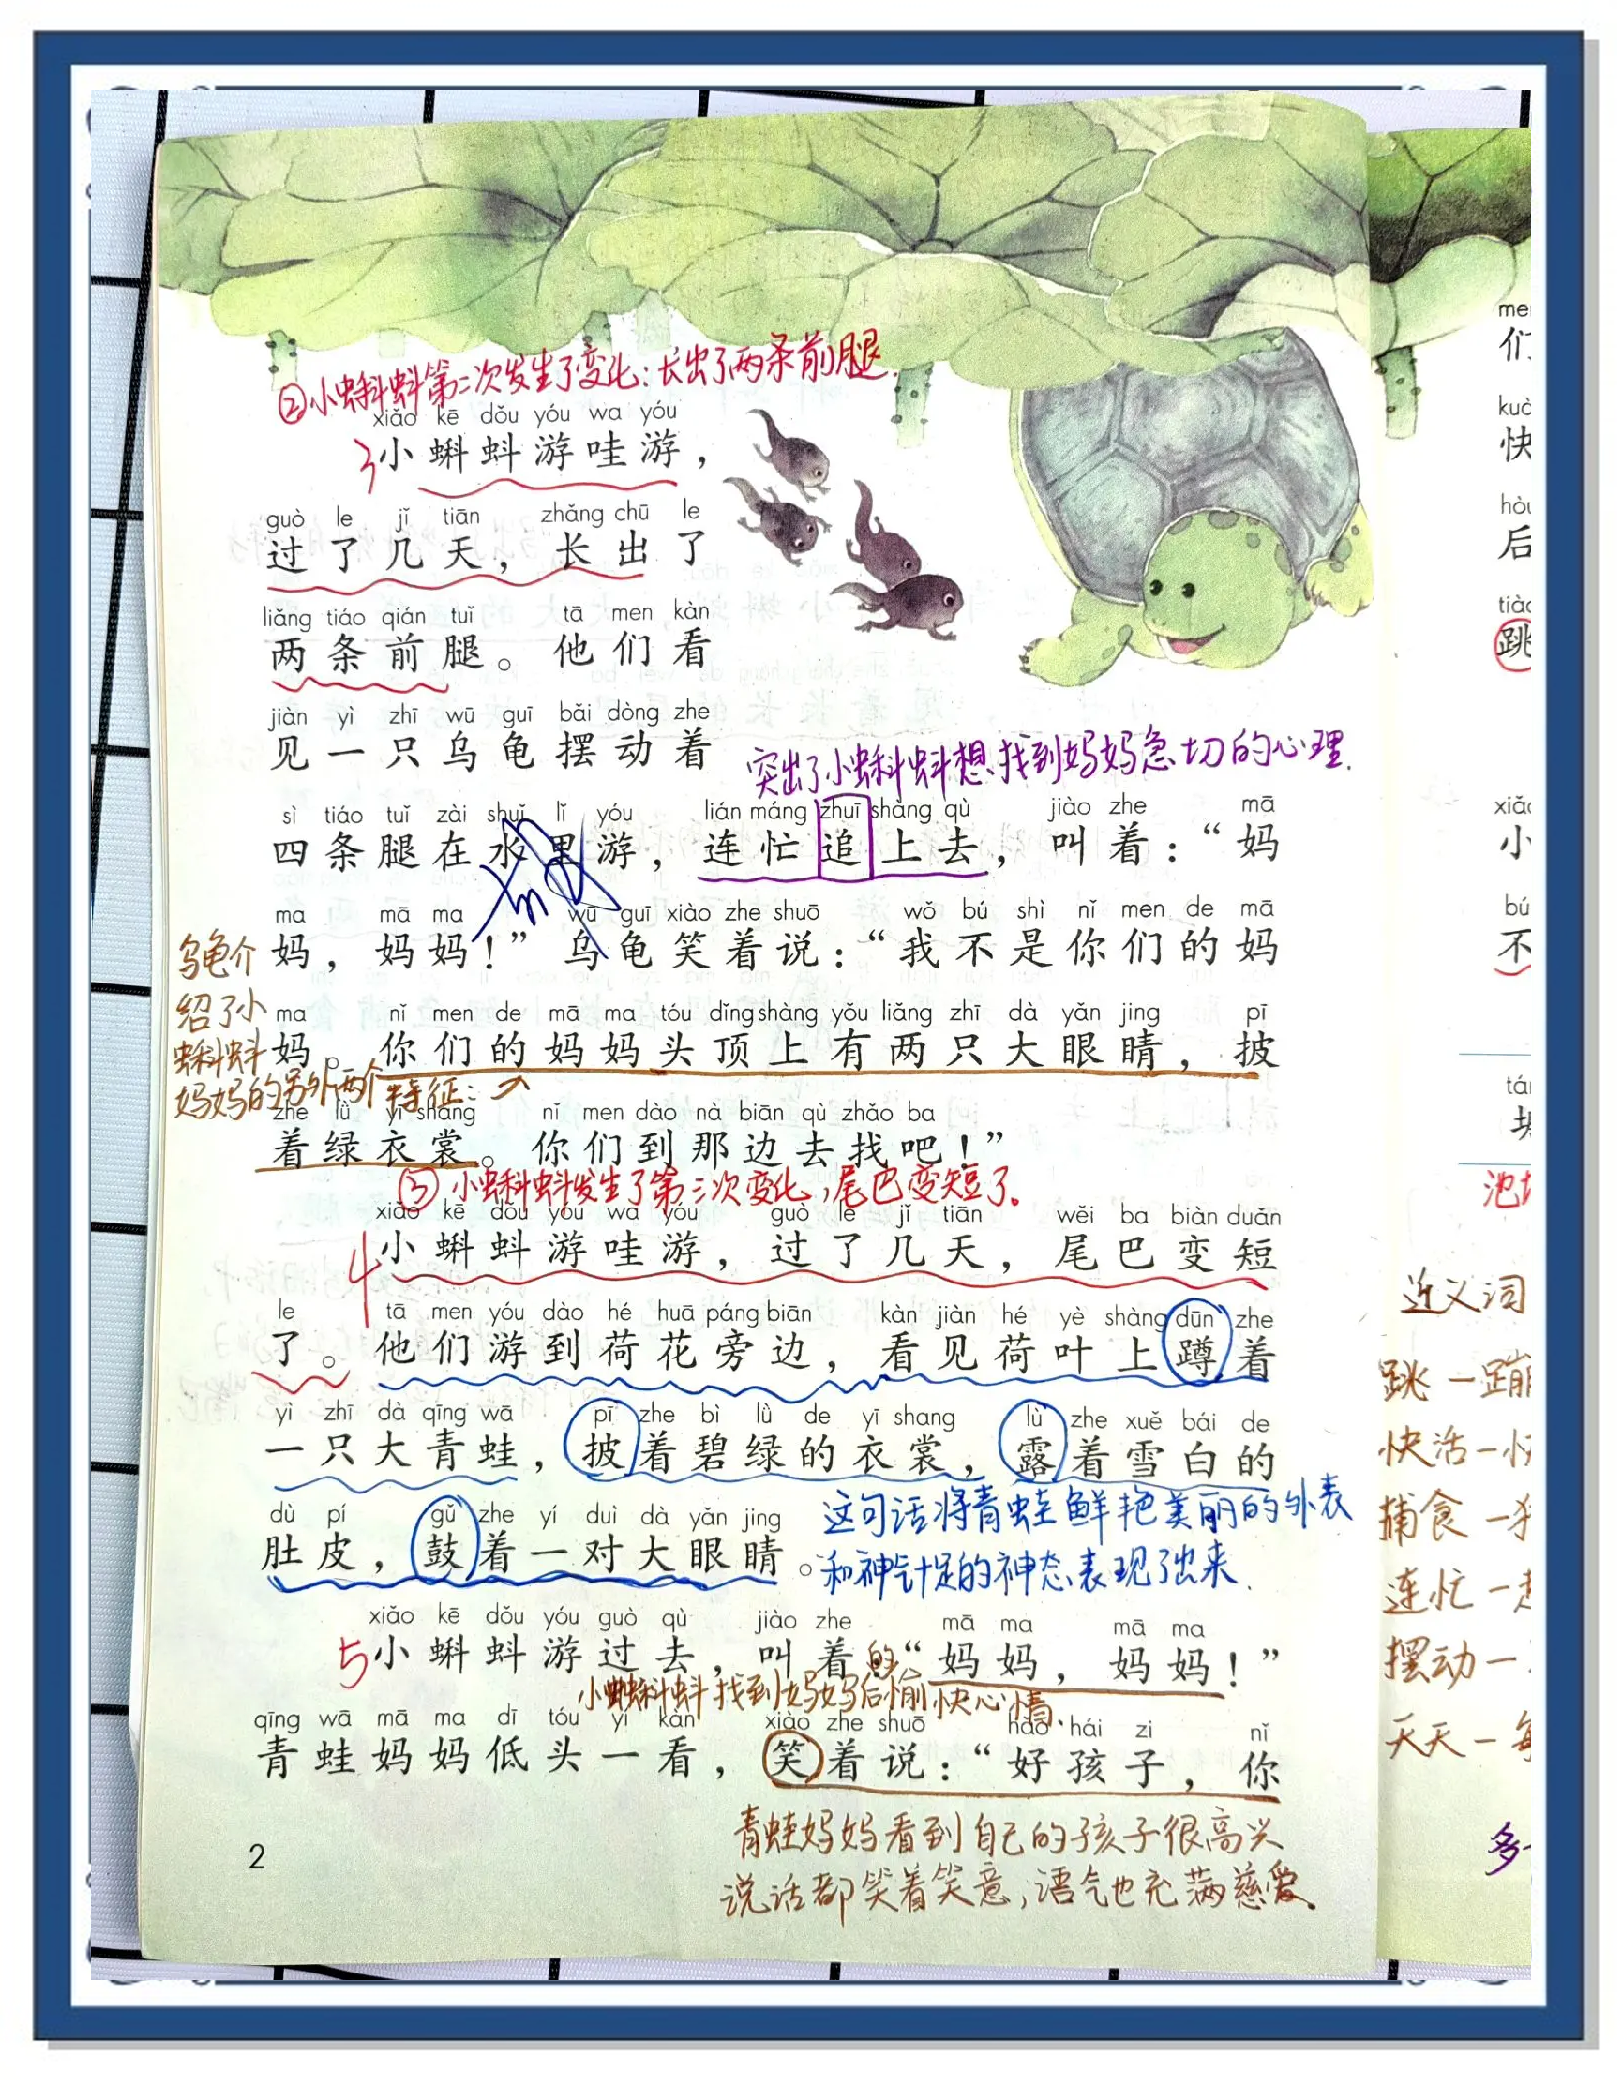 ②小蝌蚪第二次发生了变化:长出了两条前腿.
xiǎo kē dǒu yóu wa yóu
3小蝌蚪游哇游，
guò le jǐ tiān zhǎng chū le
过了几天，长出了
liǎng tiáo qián tuǐ tā men kàn
两条前腿。他们看
jiàn yì zhī wū guī bǎi dòng zhe
见一只乌龟摆动着
突出了小蝌蚪想找到妈妈急切的心理.
sì tiáo tuǐ zài shuǐ lǐ yóu lián máng zhuī shàng qù jiào zhe mā
四条腿在水里游，连忙追上去，叫着：“妈
ma mā ma wū guī xiào zhe shuō wǒ bú shì nǐ men de mā
妈，妈妈！”乌龟笑着说：“我不是你们的妈
乌龟介
绍了小
蝌蚪
妈妈的另外两个特征:
ma nǐ men de mā ma tóu dǐng shàng yǒu liǎng zhī dà yǎn jing pī
妈。你们的妈妈头顶上有两只大眼睛，披
zhe lǜ yī shang nǐ men dào nà biān qù zhǎo ba
着绿衣裳。你们到那边去找吧！”
③小蝌蚪发生了第三次变化,尾巴变短了。
xiǎo kē dǒu yóu wa yóu guò le jǐ tiān wěi ba biàn duǎn
4小蝌蚪游哇游，过了几天，尾巴变短
le tā men yóu dào hé huā páng biān kàn jiàn hé yè shàng dūn zhe
了。他们游到荷花旁边，看见荷叶上蹲着
yì zhī dà qīng wā pī zhe bì lǜ de yī shang lù zhe xuě bái de
一只大青蛙，披着碧绿的衣裳，露着雪白的
dù pí gǔ zhe yí duì dà yǎn jing
肚皮，鼓着一对大眼睛。
这句话将青蛙鲜艳美丽的外表
和神气十足的神态表现了出来.
xiǎo kē dǒu yóu guò qù jiào zhe mā ma mā ma
5小蝌蚪游过去，叫着的“妈妈，妈妈！”
小蝌蚪找到妈妈后愉快心情.
qīng wā mā ma dī tóu yí kàn xiào zhe shuō hǎo hái zi nǐ
青蛙妈妈低头一看，笑着说：“好孩子，你
青蛙妈妈看到自己的孩子很高兴
说话都笑着笑意,语气也充满慈爱.
2
men
们
kuà
快
hòu
后
tiào
跳
xiǎo
小
bú
不
近义词
跳一蹦
快活一快
捕食一
连忙一赶
摆动一
天天一每
多